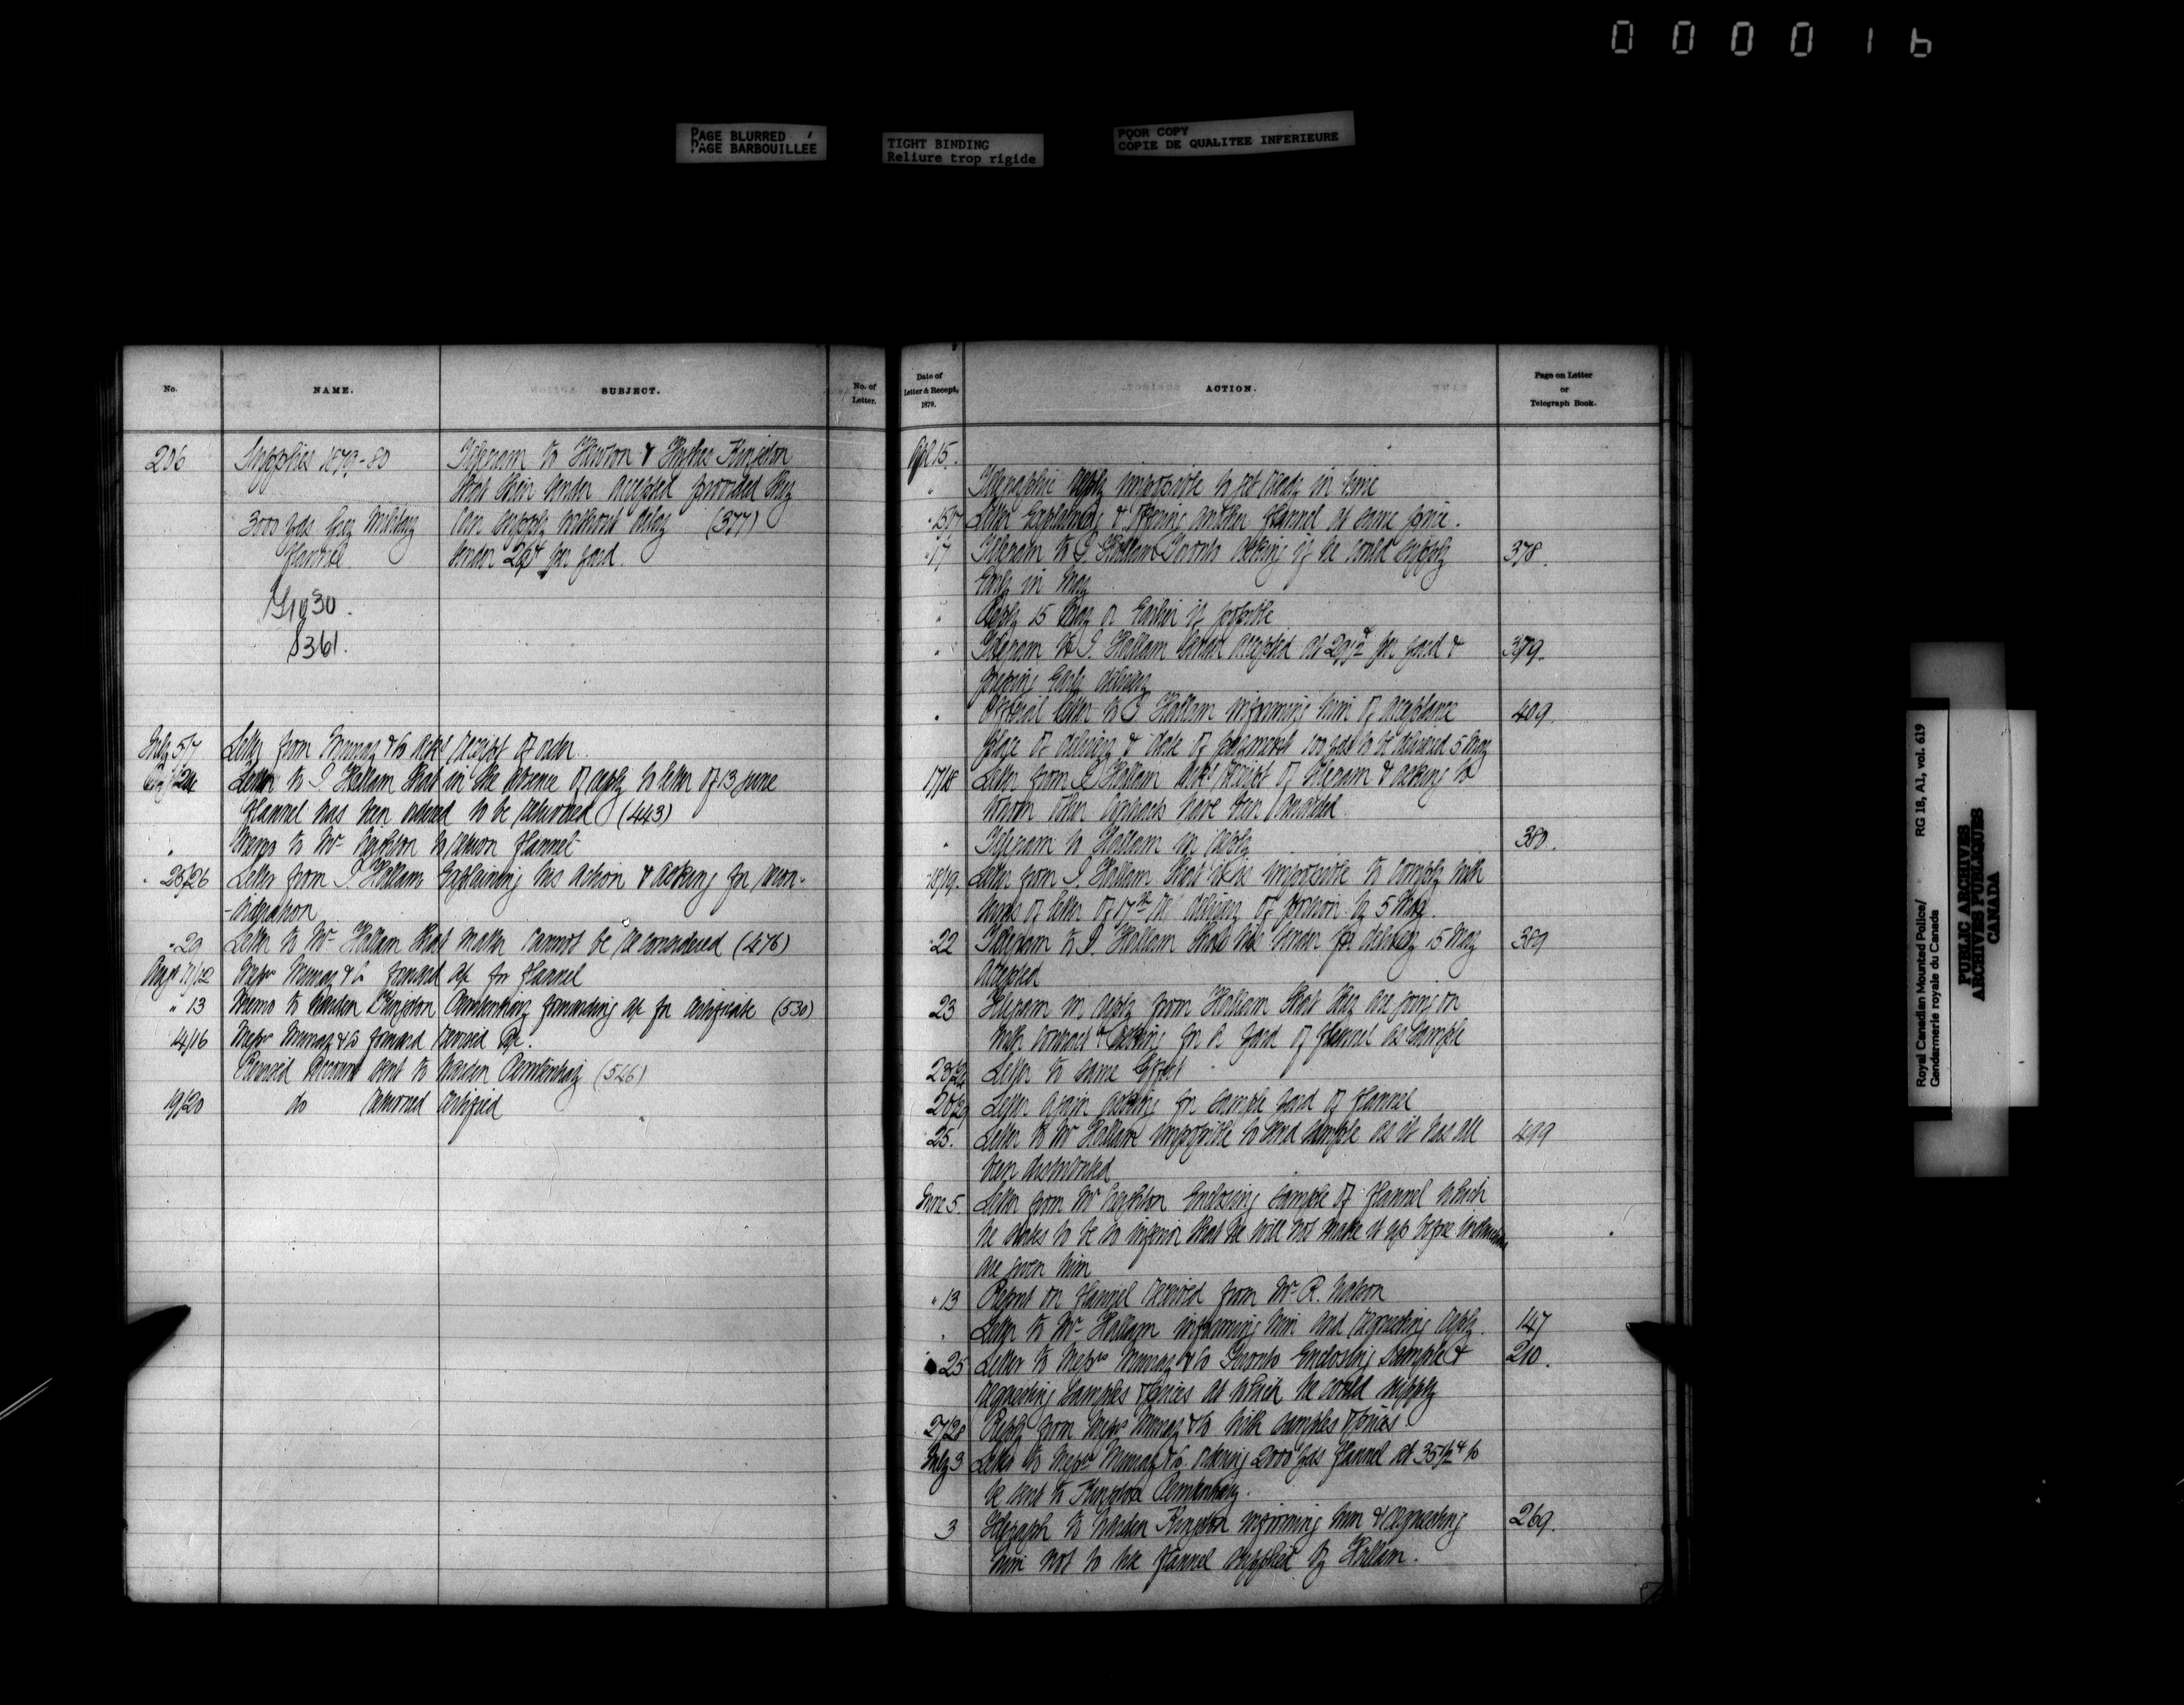 000016
PAGE BLURRED
PAGE BARBOUILLÉE
TIGHT BINDING
Reliure trop rigide
POOR COPY
COPIE DE QUALITEE INFERIEURE
No.
NAME.
SUBJECT.
No. of
Letter.
206
Supplies 1879-80
Telegram to Hewton & Hushes Kingston
that their tender accepted provided they
3000 yds Grey Military
can supply without delay (377)
Flannel
tender 29¢ per yard.
8361.
July 5/7 Letter from Murray & Co ackg receipt of order
24 Letter to J. Hallam that in the absence of reply to letter of 13 June
flannel has been ordered to be returned (443)
" Memo to Mr Creighton to return flannel
" 25/26 Letter from J. Hallam explaining his action & asking for recon-
-sideration
" 29 Letter to Mr Hallam that matter cannot be reconsidered (476)
Augt 11/12 Messrs Murray & Co forward a/c for flannel
" 13 Memo to Warden Kingston Penitentiary forwarding a/c for certificate (530)
14/16 Messrs Murray & Co forward revised a/c.
Revised Account sent to Warden Penitentiary (546)
19/20 do returned certified
Date of
Letter & Receipt,
1879.
ACTION.
Page on Letter
or
Telegraph Book.
Apl 15.
" Telegraphic reply impossible to get ready in time
" 15/17 Letter explaining & offering another flannel at same price.
" 17 Telegram to J. Hallam Toronto asking if he could supply 378.
early in May
" Reply 15 May or earlier if possible
" Telegram to J. Hallam tender accepted at 29½ per yard & 379.
early delivery
" Official letter to J. Hallam informing him of acceptance 409
place of delivery & date of 100 yds to be delivered 5 May
17/18 Letter from J. Hallam ackg receipt of telegram & asking to
whom other contracts have been awarded.
" Telegram to Hallam in reply 380.
" 18/19. Letter from J. Hallam that it is impossible to comply with
terms of letter of 17th re delivery of portion by 5 May.
" 22 Telegram to J. Hallam that his tender for delivery 15 May 389
accepted
23 Telegram in reply from Hallam that they are going on
with contract & asking for a yard of flannel as sample
23/24 Letter to same effect
Letter again asking for sample yard of flannel
25. Letter to Mr Hallam impossible to send sample as it has all 499
been distributed
June 5. Letter from Mr Creighton enclosing sample of flannel which
he states to be so inferior that he will not make it up before instructions
are given him
" 13 Report on flannel received from Mr R. Watson
" Letter to Mr Hallam informing him and requesting reply. 147
" 25 Letter to Messrs Murray & Co Toronto enclosing sample & 210.
requesting samples & prices at which he could supply
27/28 Reply from Messrs Murray & Co with samples & prices
July 3 Letter to Messrs Murray & Co. ordering 2000 yds flannel at 35½ ¢ to
be sent to Kingston Penitentiary.
3 Telegraph to Warden Kingston informing him & requesting 269.
him not to use flannel supplied by Hallam.
Royal Canadian Mounted Police/
Gendarmerie royale du Canada
RG 18, A1, vol. 619
PUBLIC ARCHIVES
ARCHIVES PUBLIQUES
CANADA